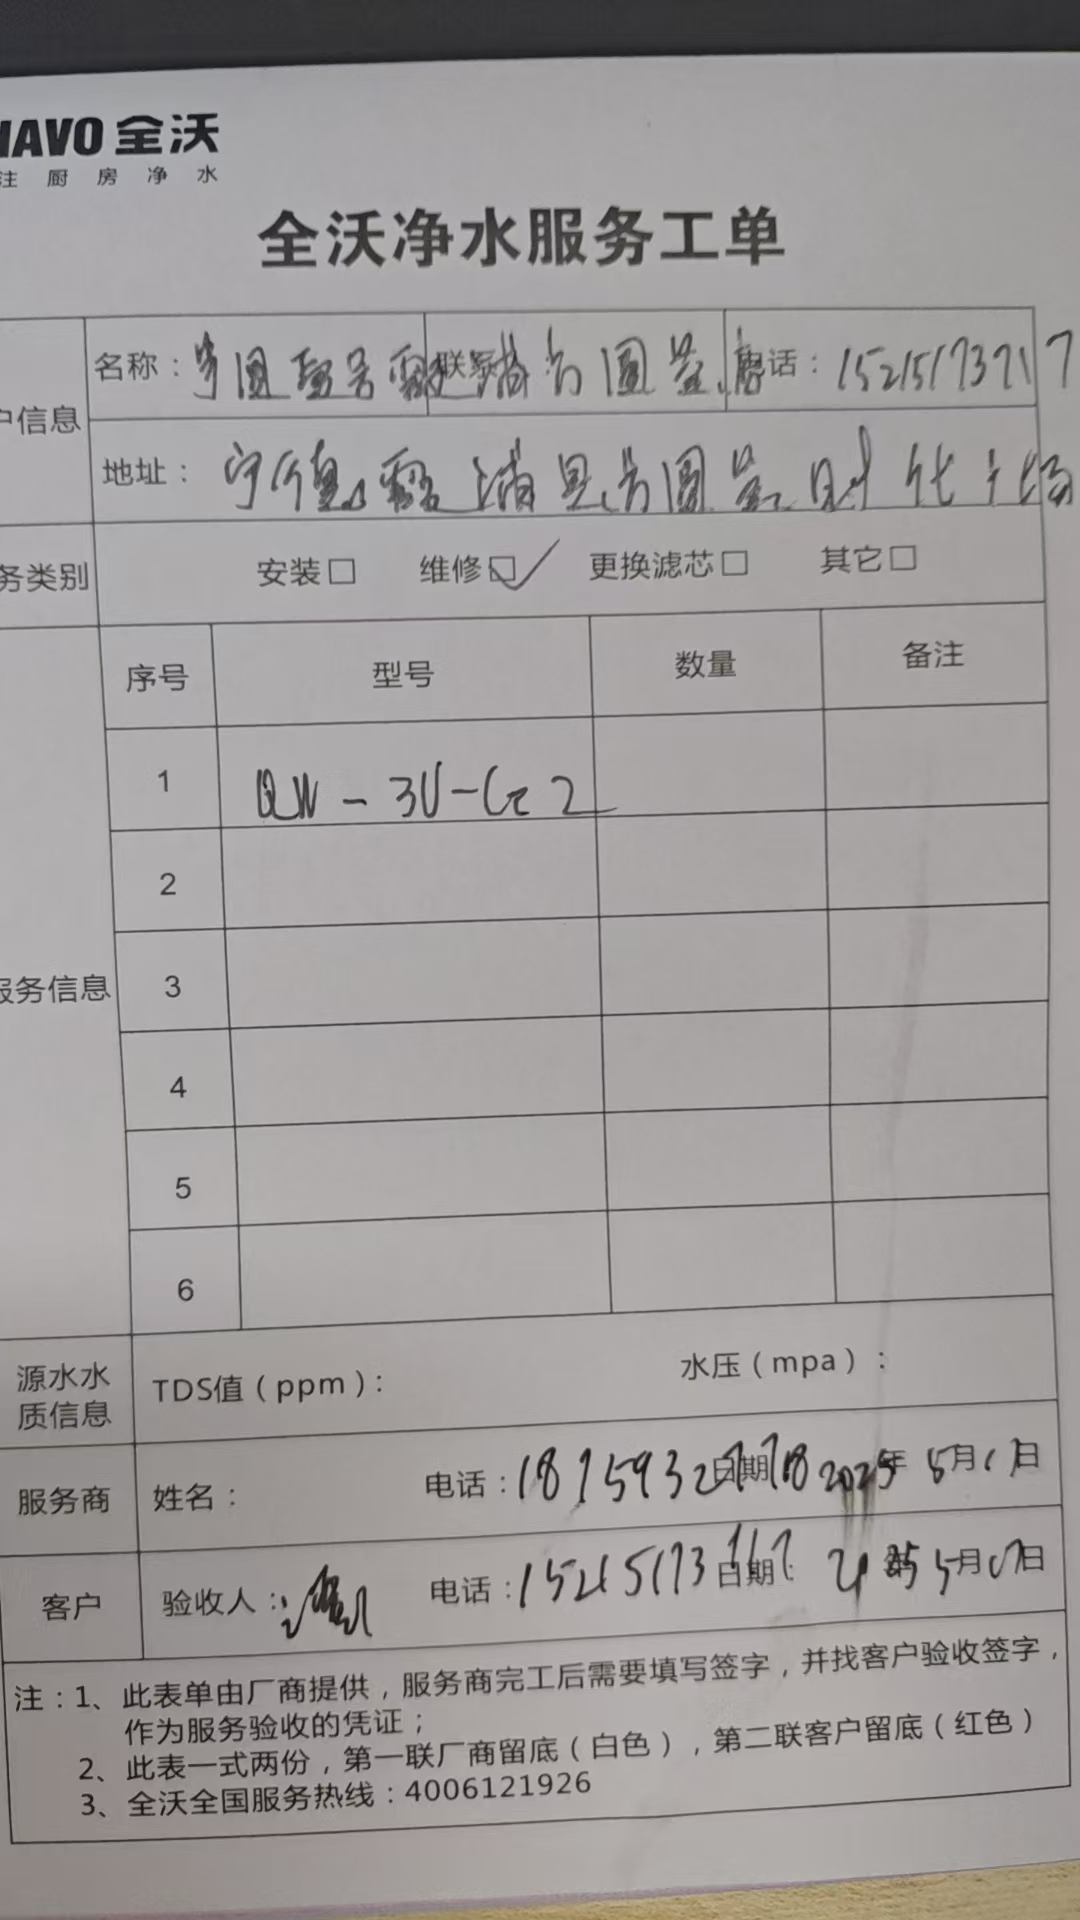 NAVO 全沃
注厨房净水
全沃净水服务工单
户信息
名称：
联系
电话：15215173717
地址：宁德 霞浦县方圆荟时代广场
务类别
安装□ 维修☑ 更换滤芯□ 其它□
服务信息
序号 型号 数量 备注
1 QW-3U-G2
2
3
4
5
6
源水水质信息
TDS值（ppm）： 水压（mpa）：
服务商 姓名： 电话： 日期 2025年5月17日
客户 验收人： 电话： 日期： 5月17日
注：1、此表单由厂商提供，服务商完工后需要填写签字，并找客户验收签字，
作为服务验收的凭证；
2、此表一式两份，第一联厂商留底（白色），第二联客户留底（红色）
3、全沃全国服务热线：4006121926